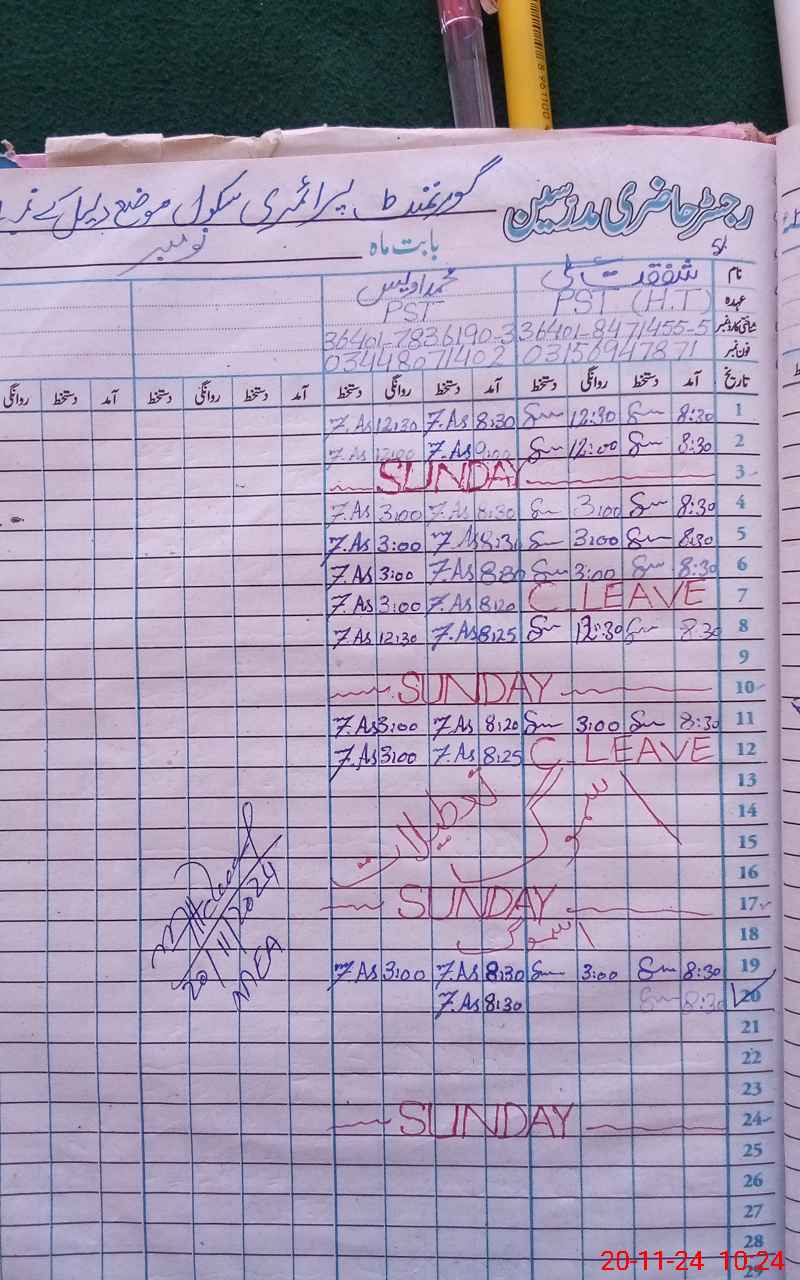 رجسٹر حاضری مدرسین گورنمنٹ پرائمری سکول موضع
بابت ماہ نومبر
نام شفقت محمد اویس
عہدہ PST (H.T) PST
شناختی کارڈ نمبر 36401-8471455-5 36401-7836190-3
فون نمبر 03156947871 03448071402
تاریخ آمد دستخط روانگی دستخط آمد دستخط روانگی دستخط آمد دستخط روانگی دستخط آمد دستخط روانگی
1 8:30 12:30 8:30 7.As 12:30 7.As
2 8:30 12:00 7.As 12:00 7.As
3 SUNDAY
4 8:30 3:00 8:30 7.As 3:00 7.As
5 8:30 3:00 7.As 3:00 7.As
6 8:30 3:00 8:30 7.As 3:00 7.As
7 C_LEAVE 8:20 7.As 3:00 7.As
8 8:30 12:30 8:25 7.As 12:30 7.As
9
10 SUNDAY
11 8:30 3:00 8:20 7.As 3:00 7.As
12 C_LEAVE 8:25 7.As 3:00 7.As
13
14 سموگ تعطیلات
15
16
17 SUNDAY
18 سموگ
19 8:30 3:00 8:30 7.As 3:00 7.As
20 8:30 8:30 7.As
20/11/2024
MEA
21
22
23
24 SUNDAY
25
26
27
28
29
20-11-24 10:24